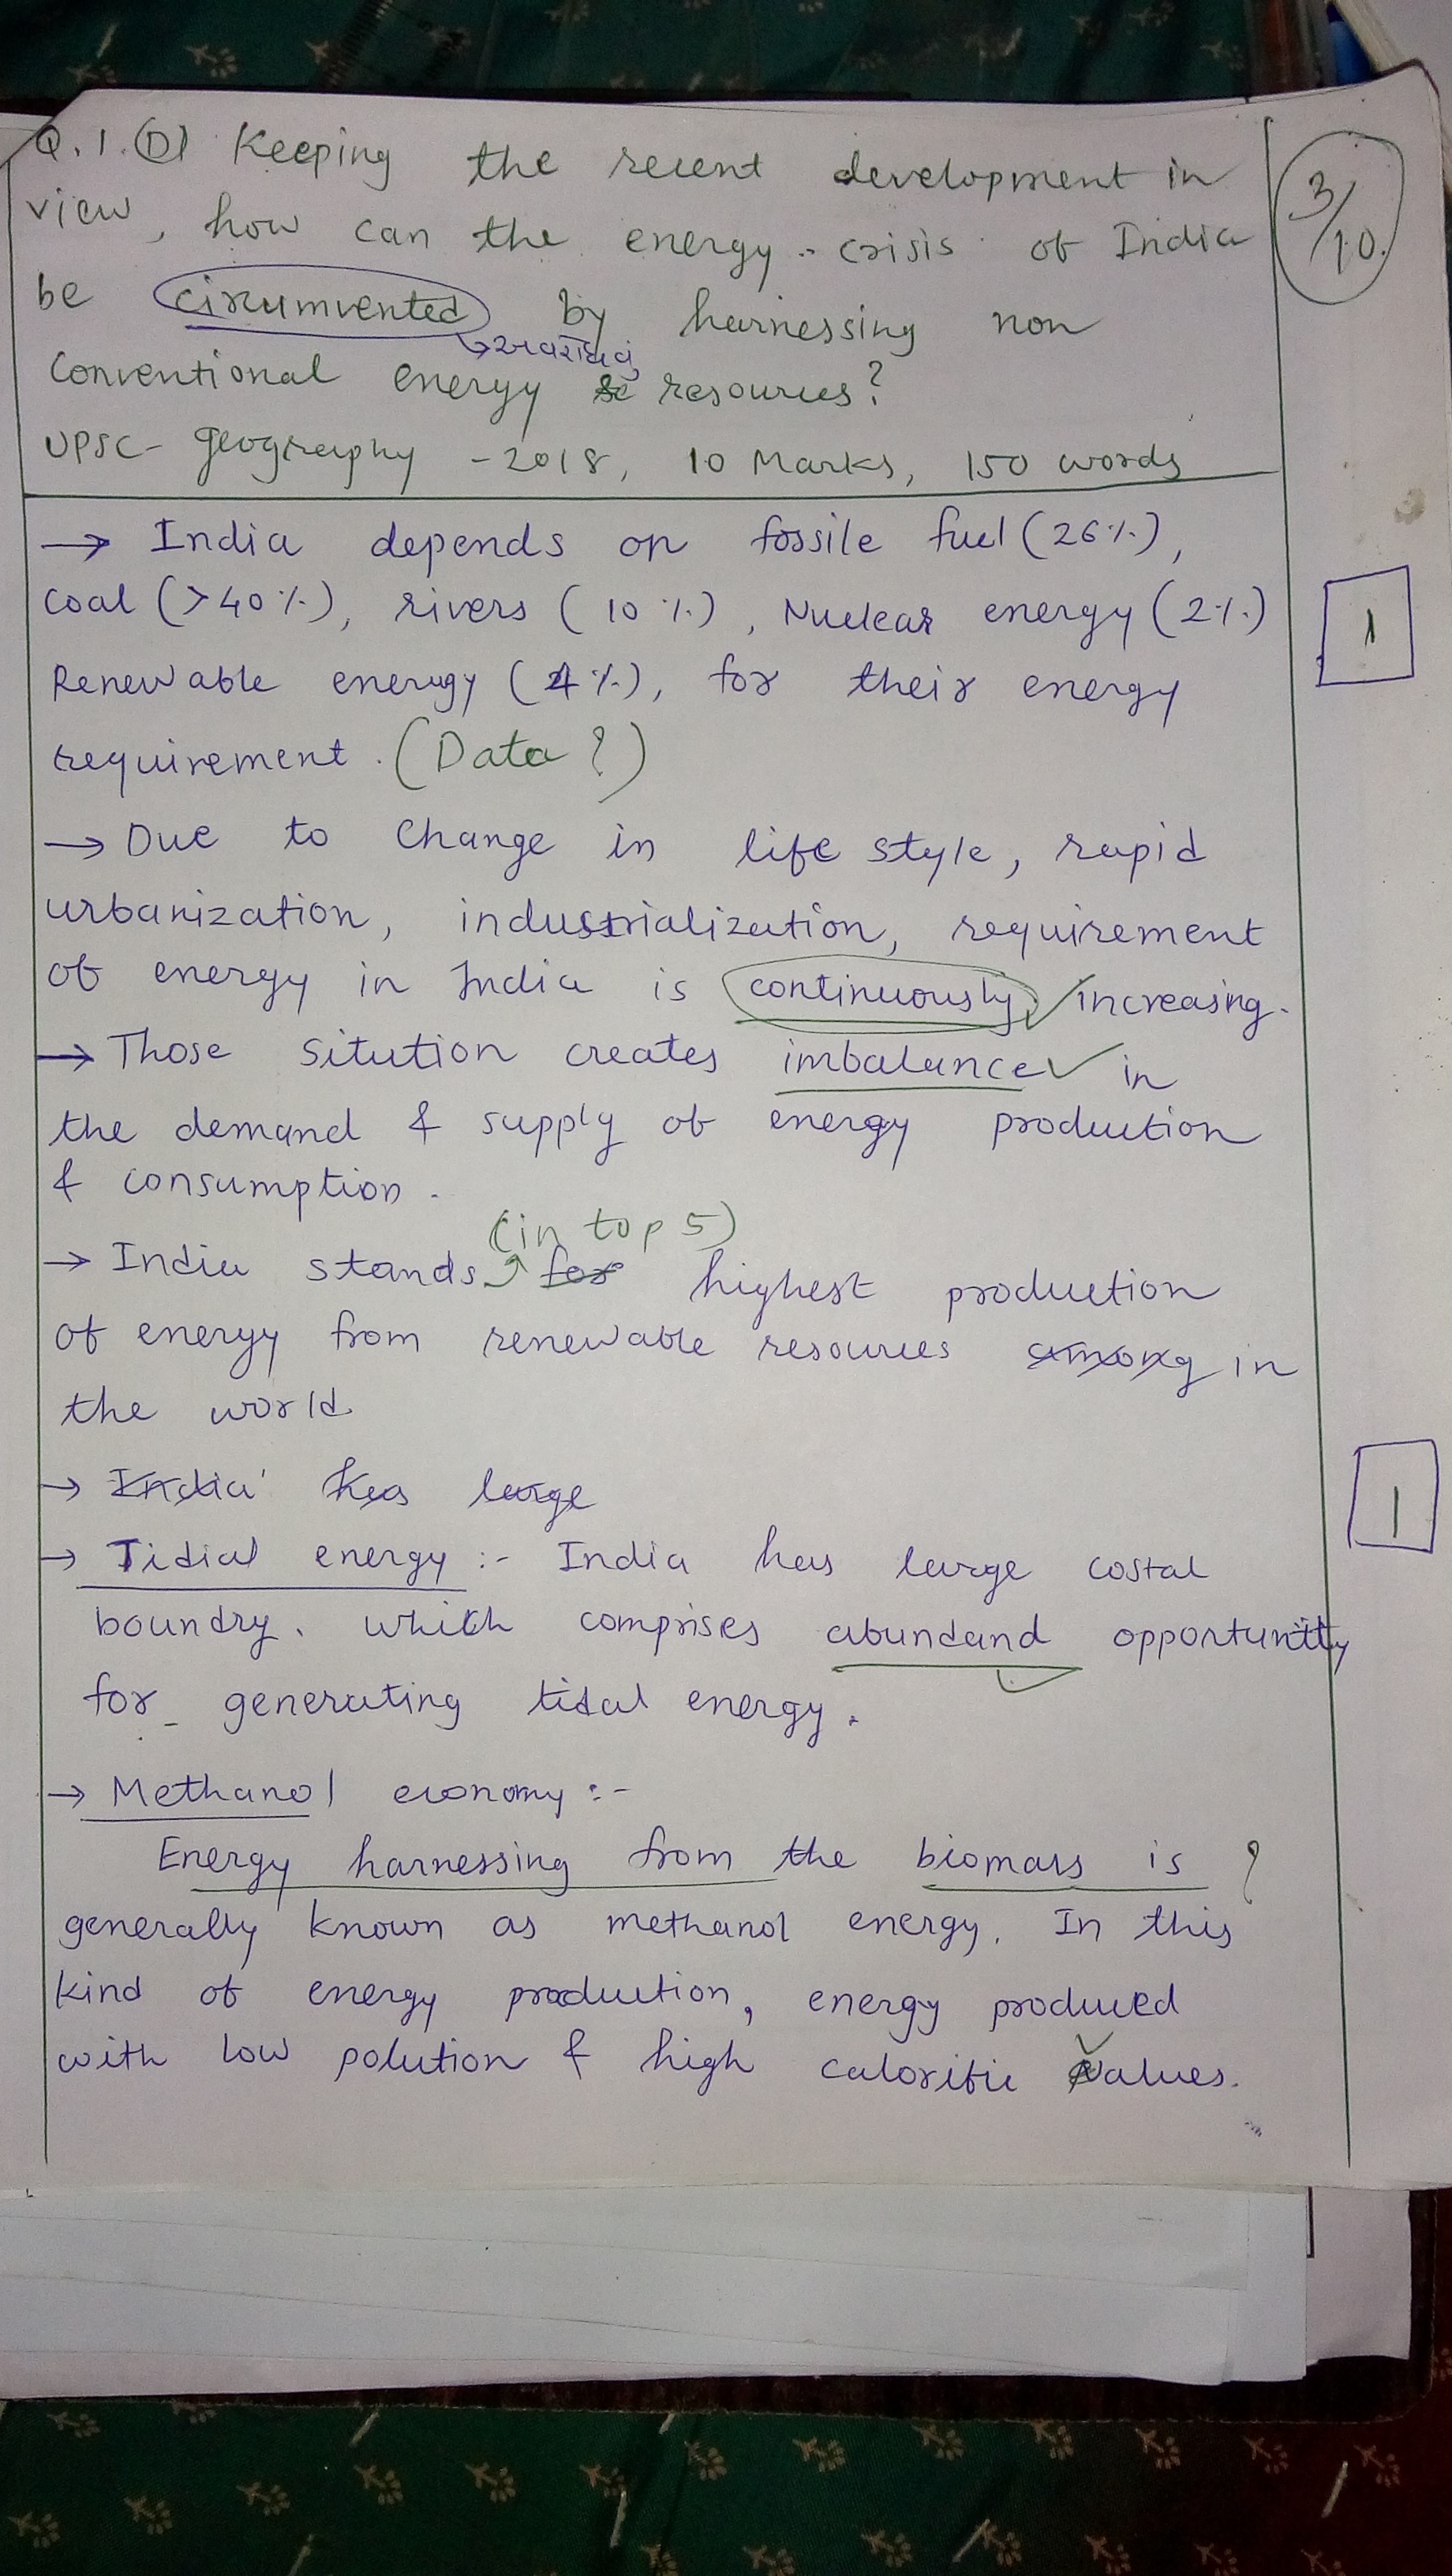 Q.1.(D) Keeping the recent development in
view, how can the energy crisis of India
be circumvented by harnessing non
conventional energy resources?
UPSC- geography -2018, 10 Marks, 150 words
3/10.
→ India depends on fossile fuel (26%),
coal (>40%), rivers (10%), Nuclear energy (2%)
1
Renewable energy (4%), for their energy
requirement. (Data ?)
→ Due to change in life style, rapid
urbanization, industrialization, requirement
of energy in India is continuously increasing.
→ Those sitution creates imbalance in
the demand & supply of energy production
& consumption.
(in top 5)
→ India stands for highest production
of energy from renewable resources among in
the world
→ India has large
1
→ Tidial energy :- India has large costal
boundry. which comprises abundand opportunity
for generating tidal energy.
→ Methanol economy :-
Energy harnessing from the biomass is ?
generally known as methanol energy. In this
kind of energy production, energy produced
with low polution & high calorific values.